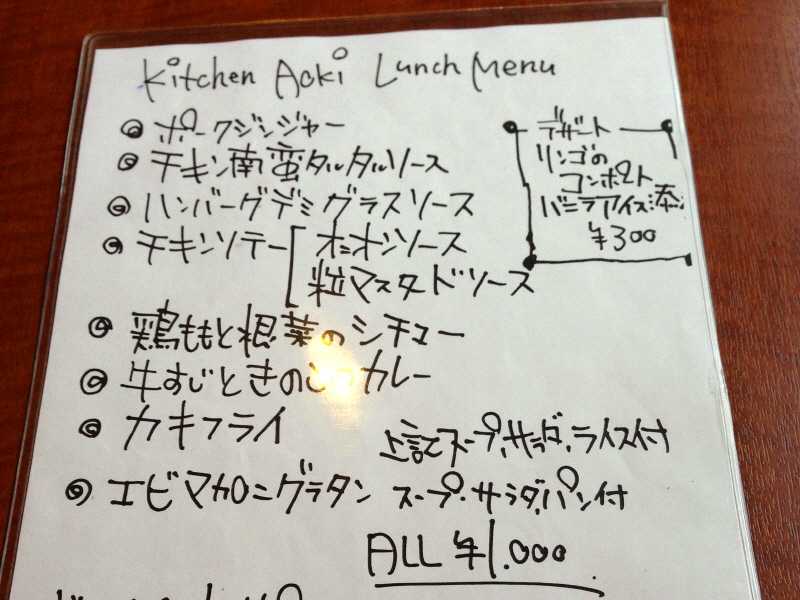 Kitchen Aoki Lunch Menu
◎ ポークジンジャー
◎ チキン南蛮タルタルソース
◎ ハンバーグデミグラスソース
◎ チキンソテー[オニオンソース
粒マスタードソース
◎ 鶏ももと根菜のシチュー
◎ 牛すじときのこのカレー
◎ カキフライ
上記スープ、サラダ、ライス付
◎ エビマカロニグラタン スープ・サラダ、パン付
ALL ¥1.000
デザート
リンゴの
コンポート
バニラアイス添
¥300